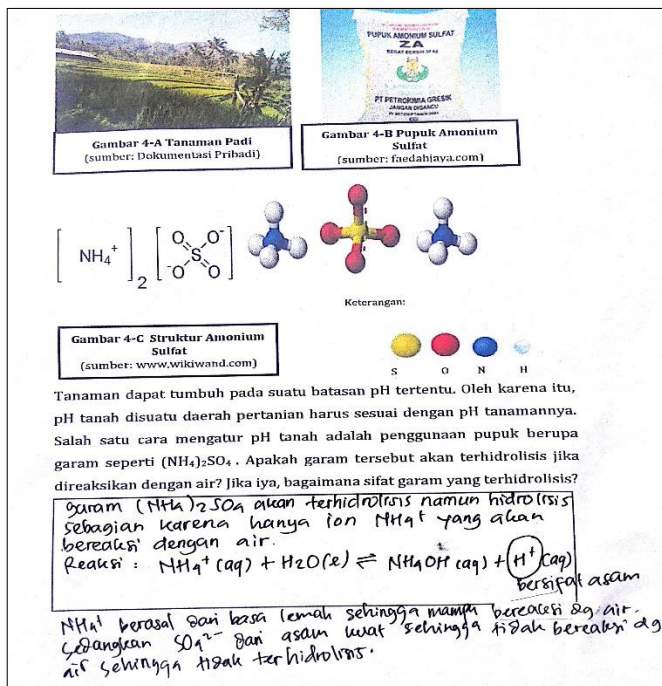 PUPUK AMONIUM SULFAT
ZA
BERAT BERSIH 50 KG
PT PETROKIMIA GRESIK
JANGAN DIGANCU
Gambar 4-A Tanaman Padi
(sumber: Dokumentasi Pribadi)
Gambar 4-B Pupuk Amonium
Sulfat
(sumber: faedahjaya.com)
[ NH4+ ]2 [ O O- S -O O ]
Keterangan:
Gambar 4-C Struktur Amonium
Sulfat
(sumber: www.wikiwand.com)
S O N H
Tanaman dapat tumbuh pada suatu batasan pH tertentu. Oleh karena itu,
pH tanah disuatu daerah pertanian harus sesuai dengan pH tanamannya.
Salah satu cara mengatur pH tanah adalah penggunaan pupuk berupa
garam seperti (NH4)2SO4 . Apakah garam tersebut akan terhidrolisis jika
direaksikan dengan air? Jika iya, bagaimana sifat garam yang terhidrolisis?
garam (NH4)2SO4 akan terhidrolisis namun hidrolisis
sebagian karena hanya ion NH4+ yang akan
bereaksi dengan air.
Reaksi : NH4+ (aq) + H2O(l) ⇌ NH4OH (aq) + H+ (aq)
bersifat asam
NH4+ berasal dari basa lemah sehingga mampu bereaksi dg air.
sedangkan SO4²⁻ dari asam kuat sehingga tidak bereaksi dg
air sehingga tidak terhidrolisis.